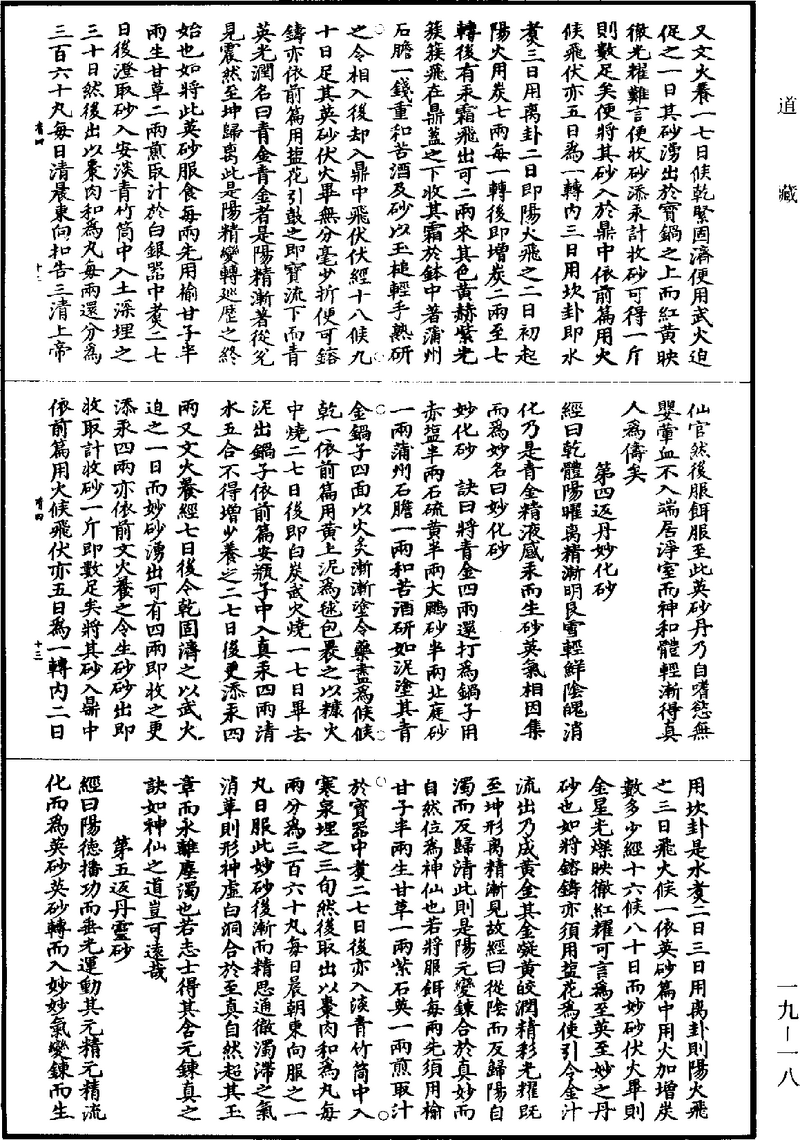 道藏
又文火養一七日候乾緊固濟便用武火迫
促之一日其砂湧出於寶鍋之上而紅黃映
徹光耀難言便收砂添汞計收砂可得一斤
則數足矣便將其砂入於鼎中依前篇用火
候飛伏亦五日為一轉內三日用坎卦即水
煑三日用离卦二日即陽火飛之二日初起
陽火用炭七兩每一轉後即增炭二兩至七
轉後有汞霜飛出可二兩來其色黃赫紫光
蔟蔟飛在鼎蓋之下收其霜於鉢中著蒲州
石膽一錢重和苦酒及砂以玉槌輕手熟研
之令相入後却入鼎中飛伏伏經十八候九
十日足其英砂伏火畢無分毫少折便可鎔
鑄亦依前篇用塩花引鼓之即寶流下而青
英光潤名曰青金青金者是陽精漸著從兌
見震然至坤歸离此是陽精變轉廵歷之終
始也如將此英砂服食每兩先用榆甘子半
兩生甘草二兩煎取汁於白銀器中煑二七
日後澄取砂入安淡青竹筒中入土深埋之
三十日然後出以棗肉和為丸每兩還分為
三百六十丸每日清晨東向扣告三清上帝
仙官然後服餌服至此英砂丹乃自嗜慾無
嬰葷血不入端居淨室而神和體輕漸得真
人為儔矣
第四返丹妙化砂
經曰乾體陽曜离精漸明艮雪輕鮮陰魄消
化乃是青金精液感汞而生砂英氣相因集
而為妙名曰妙化砂
妙化砂 訣曰將青金四兩還打為鍋子用
赤塩半兩石硫黃半兩大鵬砂半兩北庭砂
一兩蒲州石膽一兩和苦酒研如泥塗其青
金鍋子四面以火炙漸漸塗令藥盡為候候
乾一依前篇用黃土泥為毬包裹之以糠火
中燒二七日後即白炭武火燒一七日畢去
泥出鍋子依前篇安瓶子中入真汞四兩清
水五合不得增少養之二七日後更添汞四
兩又文火養經七日後令乾固濟之以武火
迫之一日而妙砂湧出可有四兩即收之更
添汞四兩亦依前文火養之令生砂砂出即
收取計收砂一斤即數足矣將其砂入鼎中
依前篇用大候飛伏亦五日為一轉內二日
用坎卦是水煑二日三日用离卦則陽火飛
之三日飛火候一依英砂篇中用火加增炭
數多少經十六候八十日而妙砂伏火畢則
金星光燦映徹紅耀可言為至英至妙之丹
砂也如將鎔鑄亦須用塩花為使引令金汁
流出乃成黃金其金凝黃皎潤精彩光耀旣
至坤形离精漸見故經曰從陰而反歸陽自
濁而反歸清此則是陽元變鍊合於真妙而
自然位為神仙也若將服餌每兩先須用榆
甘子半兩生甘草一兩紫石英一兩煎取汁
於寶器中煑二七日後亦入淡青竹筒中入
寒泉埋之三旬然後取出以棗肉和為丸每
兩分為三百六十丸每日晨朝東向服之一
丸日服此妙砂後漸而精思通徹濁滯之氣
消革則形神虛白洞合於至真自然超其玉
章而永離塵濁也若志士得其含元鍊真之
訣如神仙之道豈可遠哉
第五返丹靈砂
經曰陽德播功而垂光運動其元精元精流
化而為英砂英砂轉而入妙妙氣變鍊而生
一九－一八